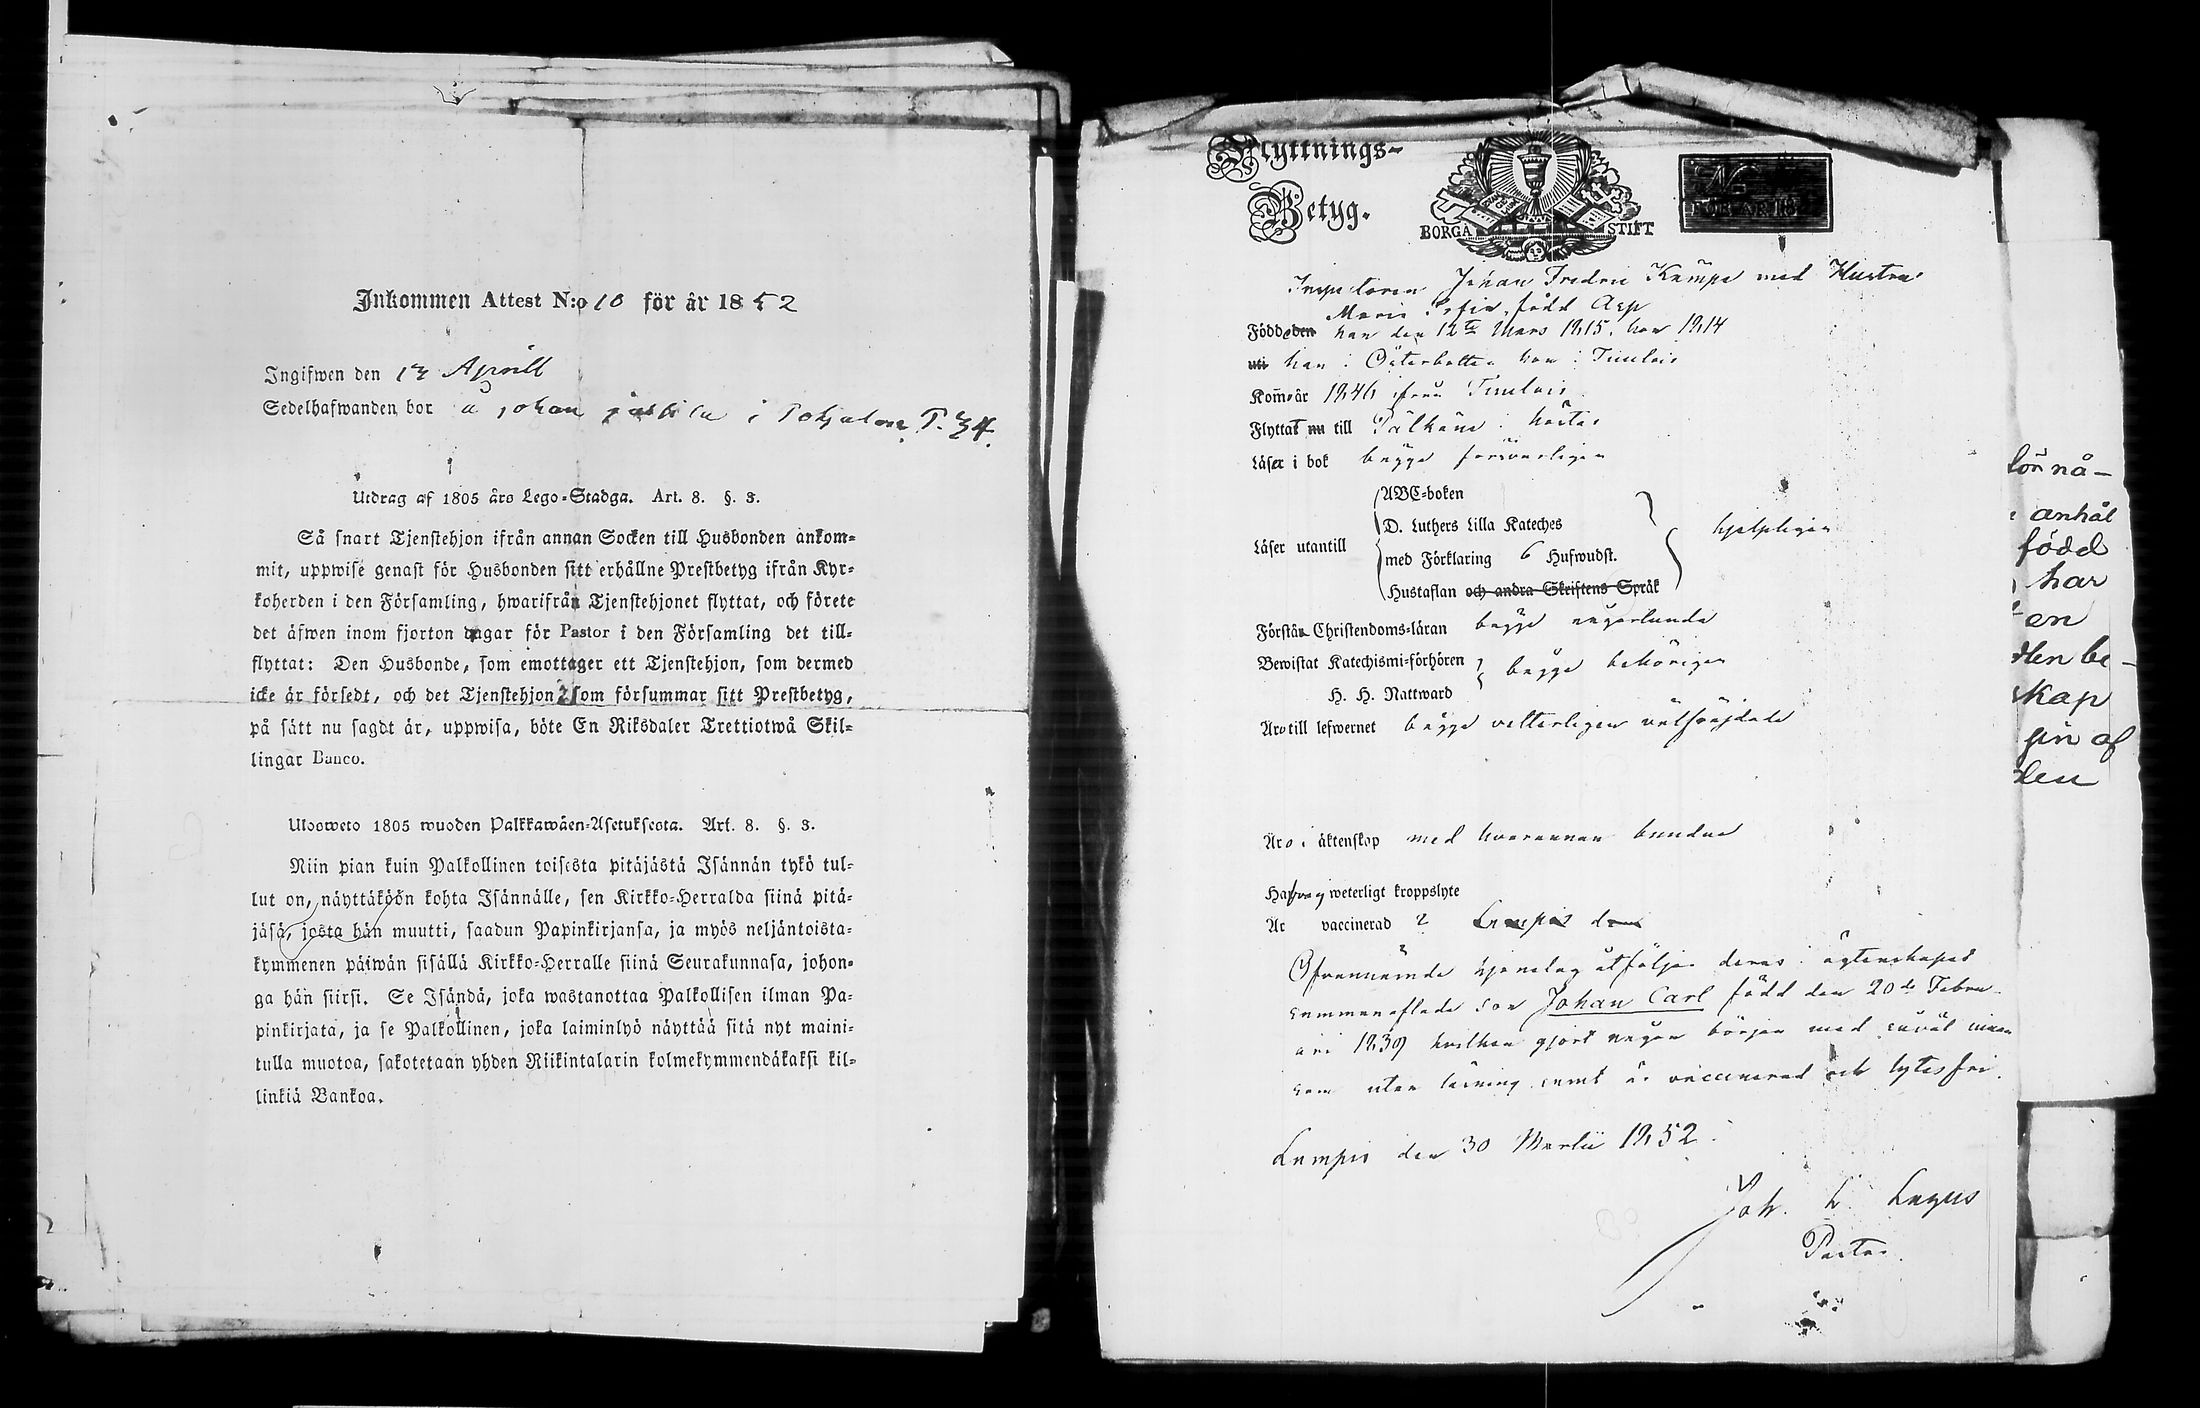 Inkommen Attest N:o 10 för år 1852
Ingifwen den 13 Aprill
Sedelhafwanden bor å johan i Pohjalan P. 34.
Utdrag af 1805 års Lego-Stadga. Art. 8. §. 3.
Så snart Tjenstehjon ifrån annan Socken till Husbonden ankom-
mit, uppwise genast för Husbonden sitt erhållne Prestbetyg ifrån Kyr-
koherden i den Församling, hwarifrån Tjenstehjonet flyttat, och förete
det äfwen inom fjorton dagar för Pastor i den Församling det till-
flyttat: Den Husbonde, som emottager ett Tjenstehjon, som dermed
icke är försedt, och det Tjenstehjon som försummar sitt Prestbetyg,
på sätt nu sagdt är, uppwisa, böte En Riksdaler Trettiotwå Skil-
lingar Banco.
Ulosweto 1805 wuoden Palkkawäen-Asetuksesta. Art. 8. §. 3.
Niin pian kuin Palkollinen toisesta pitäjästä Isännän tykö tul-
lut on, näyttäköön kohta Isännälle, sen Kirkko-Herralda siinä pitä-
jäsä, josta hän muutti, saadun Papinkirjansa, ja myös neljäntoista-
kymmenen päiwän sisällä Kirkko-Herralle siinä Seurakunnasa, johon-
ga hän siirsi. Se Isändä, joka wastanottaa Palkollisen ilman Pa-
pinkirjata, ja se Palkollinen, joka laiminlyö näyttää sitä nyt maini-
tulla muotoa, sakotetaan yhden Riikintalarin kolmekymmendäkaksi kil-
linkiä Bankoa.
Flyttnings-
Betyg.
BORGÅ STIFT
FÖR ÅR 18
Inspectoren Johan Fredric Kampe med Hustru
Maria Sofia, född Asp
Födde den han den 12te Mars 1815, hon 1814
uti han i Österbotten hon i Tuulois
Kom̄o år 1846 från Tuulois
Flyttat nu till Pälkäne
Läser i bok bägge försvarligen
Läser utantill
ABC-boken
D. Luthers Lilla Kateches
med Förklaring 6 Hufwudst.
Hustaflan och andra Skriftens Språk
hjelpligen
Förstå Christendoms-läran bägge någorlunda
Bewistat Katechismi-förhören
H. H. Nattward
bägge behörigen
Äro till lefwernet bägge vitterligen välfräjdade
Äro i äktenskap med hvarannan bundne
Hafva ej weterligt kroppslyte
Är vaccinerad ? Lampis den
Ofvannämde hjonelag åtföljer deras i ägtenskapet
sammanaflade son Johan Carl född den 20de Febru-
ari 1839 hvilken gjort någon början med såväl innan
som utan läsning samt är vaccinerad och lytesfri.
Lampis den 30 Martii 1852.
Joh. L. Lagus
Pastor.
för nå-
anhål
född
har
en
den be-
skap
gin af
den